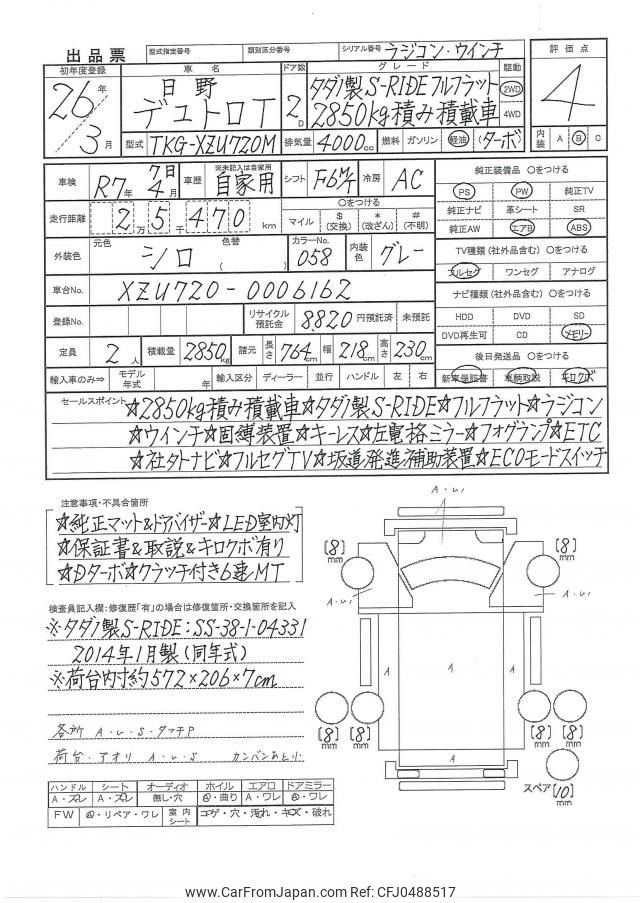 出品票 型式指定番号 類別区分番号 シリアル番号 ラジコン・ウインチ
初年度登録 車名 ドア数 グレード 駆動 評価点
26年 日野 タダノ製S-RIDEフルフラット 2WD 4
3月 デュトロT 2D 2850kg積み積載車 4WD
型式 TKG-XZU720M 排気量 4000cc 燃料 ガソリン 軽油 (ターボ) 内装 A B C
車検 R7年 7日 4月 車歴 ※未記入は自家用 自家用 シフト F6M/T 冷房 AC
走行距離 2万5千470km マイル $(交換) *(改ざん) #(不明) 〇をつける
外装色 元色 シロ 色替 ( ) カラーNo. 058 内装色 グレー
車台No. XZU720-0006162
登録No. リサイクル預託金 8,820 円預託済 未預託
定員 2人 積載量 2850kg 諸元 長さ 764cm 幅 218cm 高さ 230cm
輸入車のみ⇒ モデル年式 年 輸入区分 ディーラー 並行 ハンドル 左 右
純正装備品 〇をつける
PS PW 純正TV
純正ナビ 革シート SR
純正AW エアB ABS
TV種類(社外品含む) 〇をつける
フルセグ ワンセグ アナログ
ナビ種類(社外品含む) 〇をつける
HDD DVD SD
DVD再生可 CD メモリー
後日発送品 〇をつける
新車保証書 車輌取説 キロクボ
セールスポイント
☆2850kg積み積載車☆タダノ製S-RIDE☆フルフラット☆ラジコン
☆ウインチ☆固縛装置☆キーレス☆左電格ミラー☆フォグランプ☆ETC
☆社外ナビ☆フルセグTV☆坂道発進補助装置☆ECOモードスイッチ
注意事項・不具合箇所
☆純正マット&ドアバイザー☆LED室内灯
☆保証書&取説&キロクボ有り
☆Dターボ☆クラッチ付き6速MT
検査員記入欄:修復歴「有」の場合は修復箇所・交換箇所を記入
※タダノ製S-RIDE:SS-38-1-04331
2014年1月製(同年式)
※荷台内寸約572×206×7cm
各所 A・U・S・タッチP
荷台・アオリ A・U・S カンバンあと小
ハンドル シート オーディオ ホイル エアロ ドアミラー
A・スレ A・スレ 無し・穴 A・曲り A・ワレ A・ワレ
FW A・リペア・ワレ 室内シート コゲ・穴・汚れ・キズ・破れ
A・U1
[8]mm [8]mm
A・U1 A・U1
A A A
[8]mm [8]mm [8]mm [8]mm
A
スペア [10]mm
www.CarFromJapan.com Ref: CFJ0488517